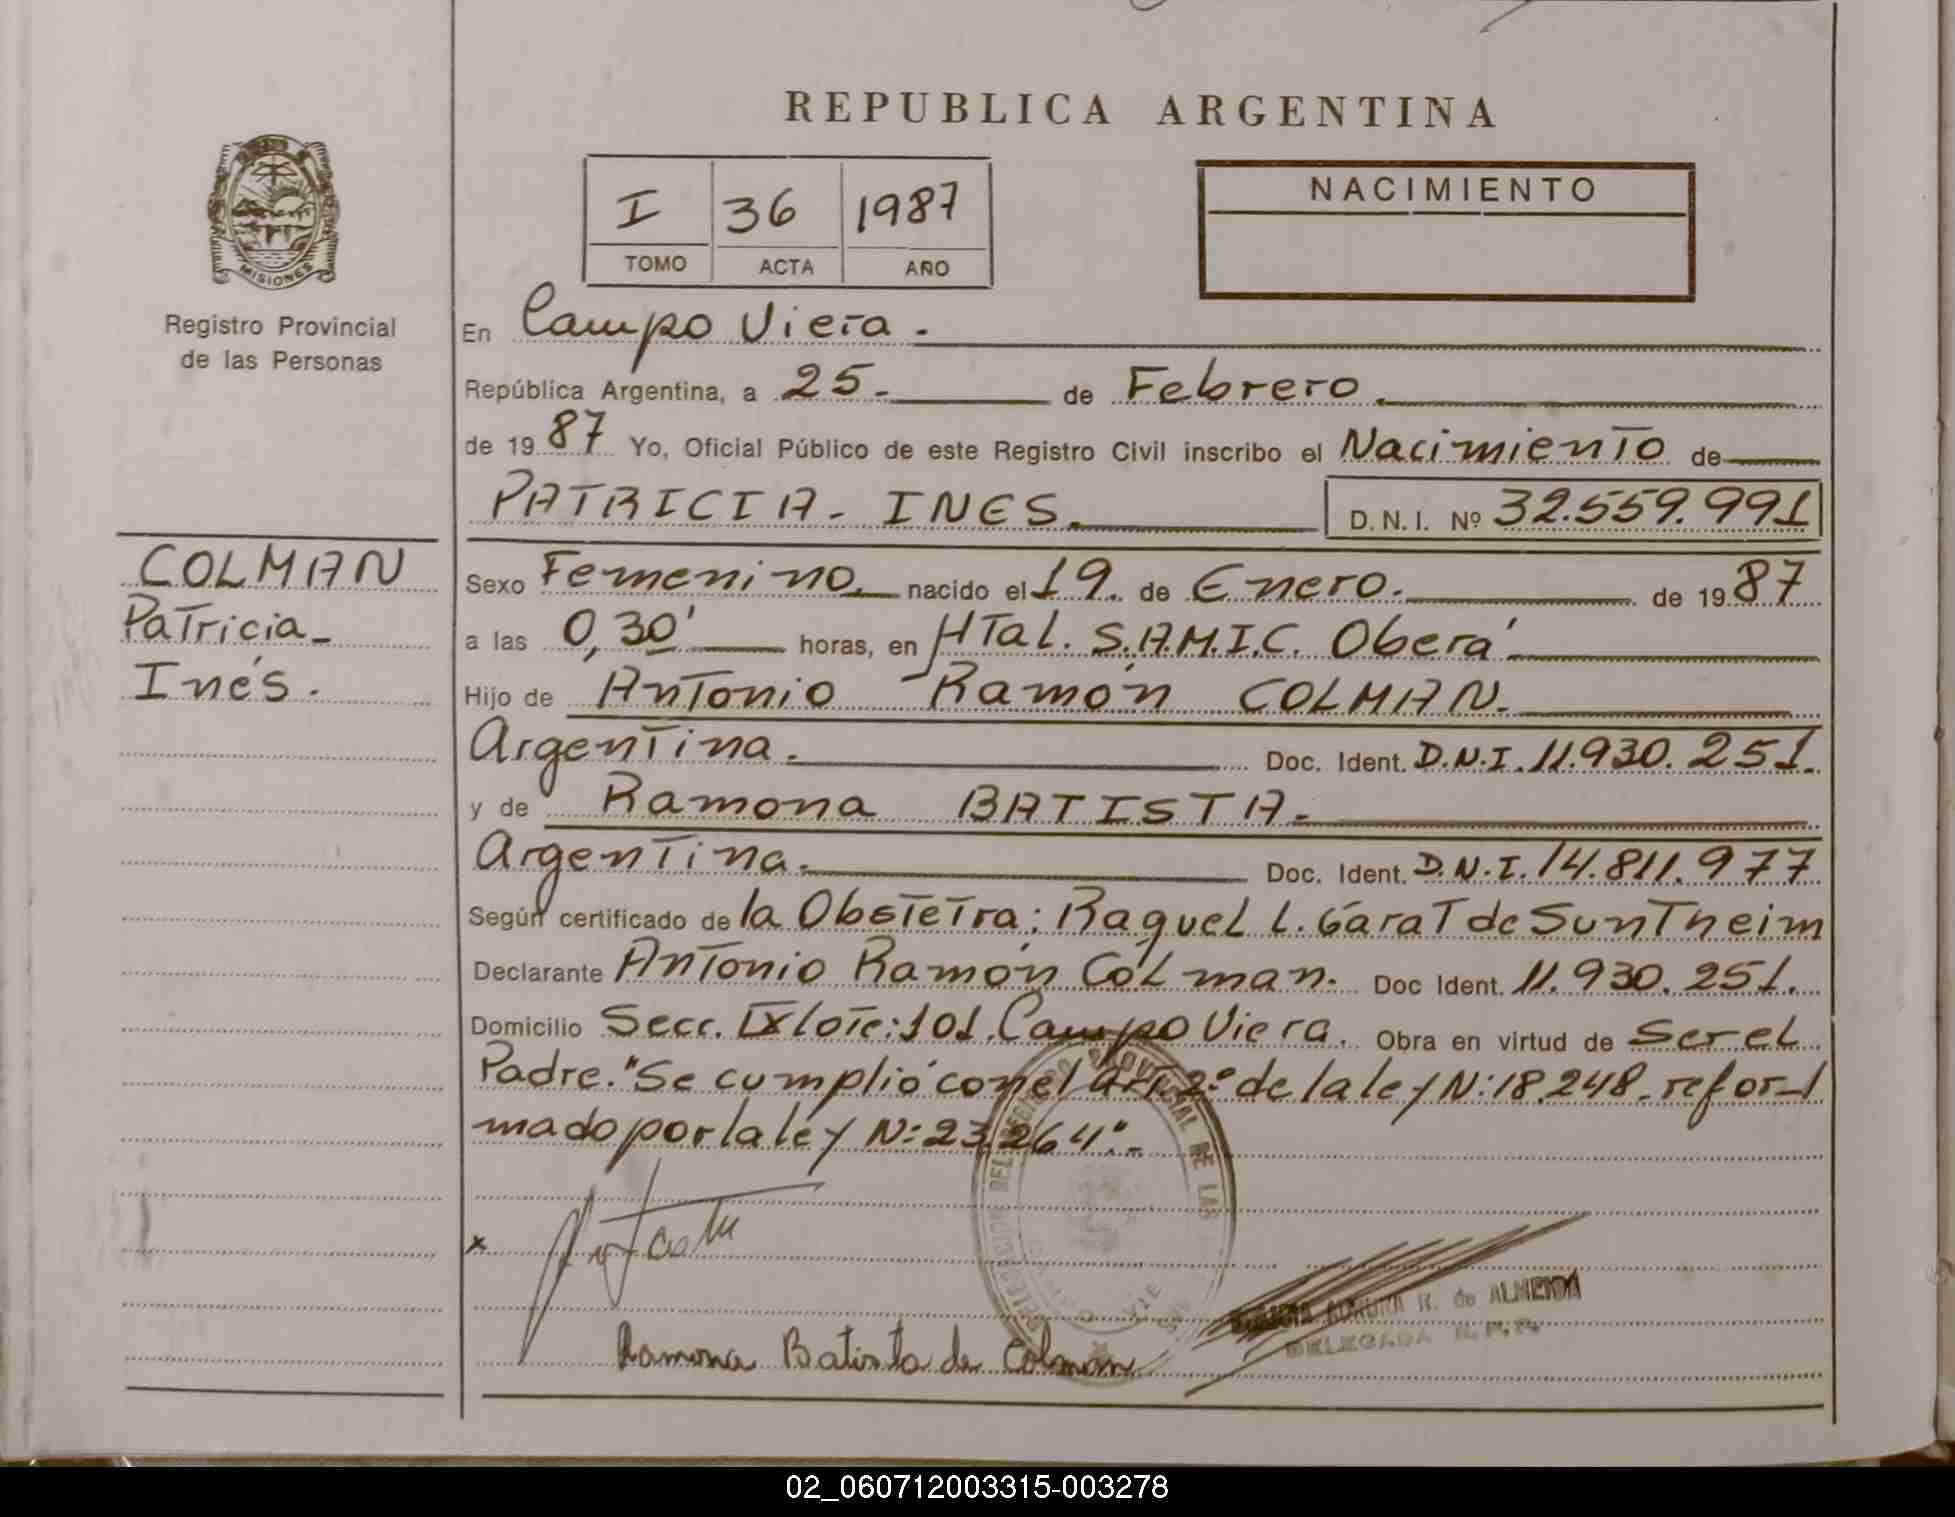 REPUBLICA ARGENTINA
I 36 1987
TOMO ACTA AÑO
NACIMIENTO
MISIONES
Registro Provincial
de las Personas
COLMAN
Patricia-
Inés.
En Campo Viera.
República Argentina, a 25- de Febrero.
de 1987 Yo, Oficial Público de este Registro Civil inscribo el Nacimiento de
PATRICIA- INES. D.N.I. Nº 32.559.991
Sexo Femenino. nacido el 19. de Enero. de 1987
a las 0,30' horas, en HTal. S.A.M.I.C. Oberá
Hijo de Antonio Ramón COLMAN.
Argentina. Doc. Ident. D.N.I. 11.930.251.
y de Ramona BATISTA-
Argentina. Doc. Ident. D.N.I. 14.811.977
Según certificado de la Obstetra: Raquel L. Garat de Suntheim
Declarante Antonio Ramón Colman. Doc Ident. 11.930.251.
Domicilio Secc. IX lote:101. Campo Viera. Obra en virtud de Ser el
Padre. "Se cumplió con el Art. 2º de la ley N:18.248- refor-
mado por la ley N:23.264".-
x
DELEGACION DEL REGISTRO PROVINCIAL DE LAS
Ramona Batista de Colman
de ALMEIDA
DELEGADA R.P.P.
02_060712003315-003278